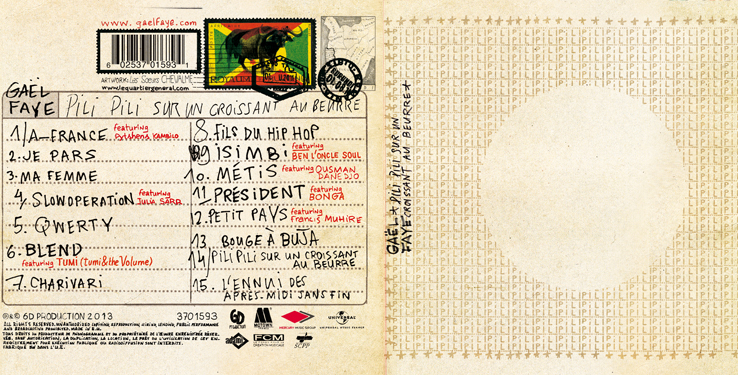 www.gaelfaye.com
6 02537 01593 1
ARTWORK: Les Sœurs CHEVALME
www.lequartiergeneral.com
GAËL FAYE
PILI PILI SUR UN CROISSANT AU BEURRE
1/A-FRANCE featuring
2. JE PARS
3. MA FEMME
4. SLOWOPERATION featuring
5. QWERTY
6. BLEND
featuring TUMI (Tumi & the Volume)
7. CHARIVARI
8. FILS DU HIP HOP
9 ISIMBI featuring BEN L'ONCLE SOUL
10. MÉTIS featuring OUSMAN DANEDJO
11 PRÉSIDENT featuring BONGA
12. PETIT PAYS featuring Francis MUHIRE
13. BOUGE À BUJA
14/ PILI PILI SUR UN CROISSANT
AU BEURRE
15. L'ENNUI DES
APRÈS-MIDI SANS FIN
℗&© 6D PRODUCTION 2013
3701593
6D PRODUCTION
MOTOWN
MERCURY MUSIC GROUP
UNIVERSAL
FCM
SCPP
GAËL ★ PILI PILI SUR UN
FAYE CROISSANT AU BEURRE ★